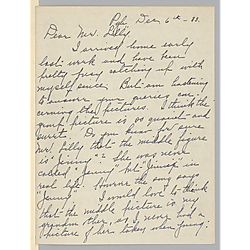 Dec 6th - 33.
Dear Mr. Lilly
I arrived home early
last week and have been
pretty busy catching up with
myself since. But am hastening
to answer your queries con-
cerning the pictures. I think the
group picture is so quaint and
sweet. Do you know for sure
Mr. Lilly that the middle figure
is "Jeniny"? She was never
called "Jenny" but "Jennie" in
real life. Course the song says
"Jenny". I would love to think
that the middle picture is my
grandmother, as I never had a
picture of her taken when young.